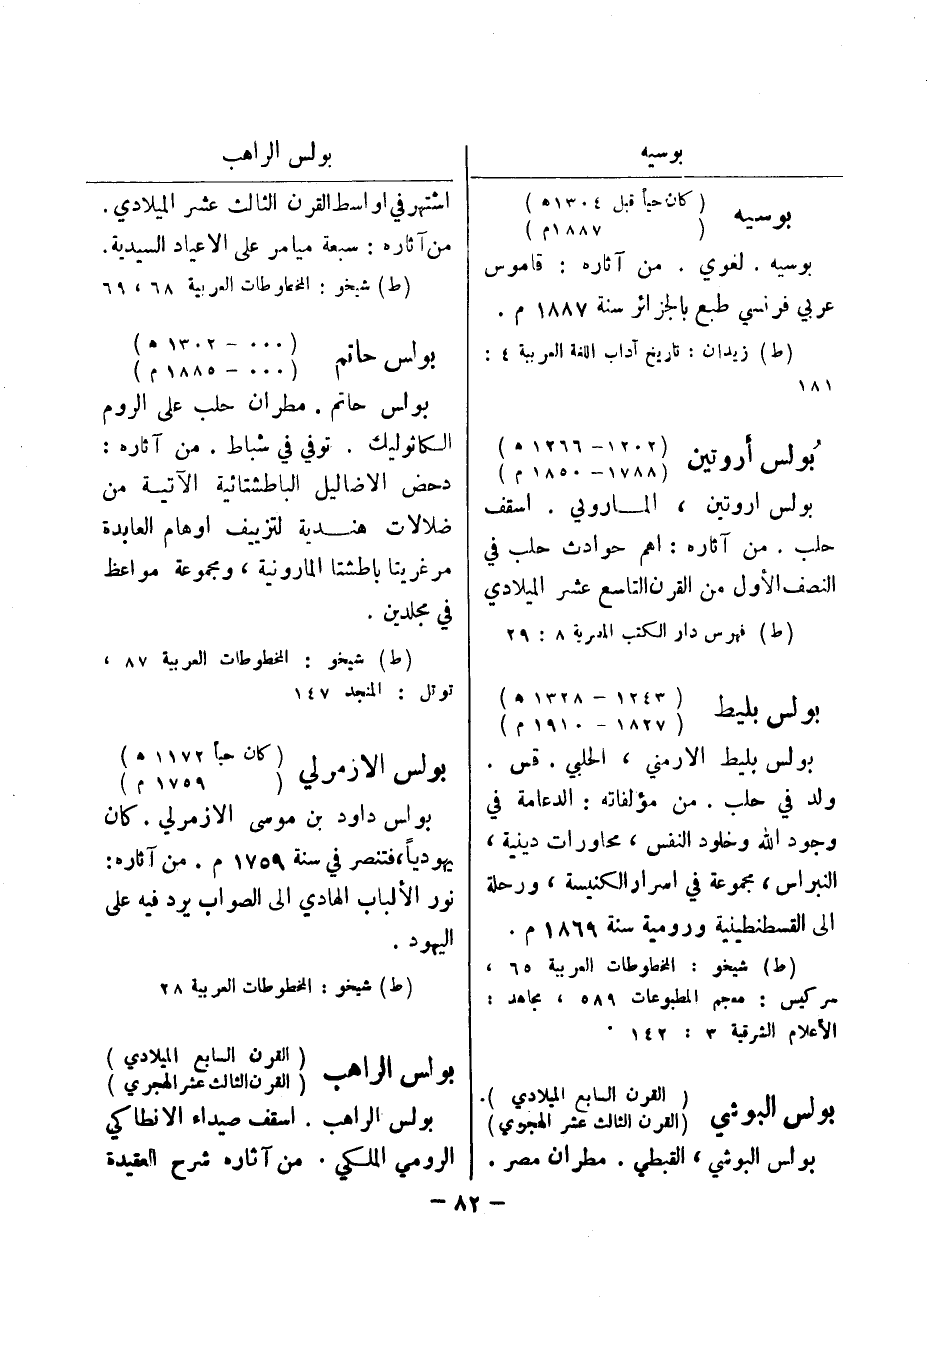 بوسيه
بوسيه
( كان حياً قبل ١٣٠٤ ه )
( ١٨٨٧ م )
بوسيه . لغوي . من آثاره : قاموس
عربي فرنسي طبع بالجزائر سنة ١٨٨٧ م .
(ط) زيدان : تاريخ آداب اللغة العربية ٤ :
١٨١
بُولس أروتين
( ١٢٠٢ - ١٢٦٦ ه )
( ١٧٨٨ - ١٨٥٠ م )
بولس اروتين ، المـــاروني . اسقف
حلب . من آثاره : اهم حوادث حلب في
النصف الأول من القرن التاسع عشر الميلادي
(ط) فهرس دار الكتب المصرية ٨ : ٢٩
بولس بليط
( ١٢٤٣ - ١٣٢٨ ه )
( ١٨٢٧ - ١٩١٠ م )
بولس بليط الارمني ، الحلبي . قس .
ولد في حلب . من مؤلفاته : الدعامة في
وجود الله وخلود النفس ، محاورات دينية ،
النبراس ، مجموعة في اسرار الكنيسة ، ورحلة
الى القسطنطينية ورومية سنة ١٨٦٩ م .
(ط) شيخو : المخطوطات العربية ٦٥ ،
سركيس : معجم المطبوعات ٥٨٩ ، مجاهد :
الأعلام الشرقية ٣ : ١٤٢ .
بولس البوشي
( القرن السابع الميلادي )
( القرن الثالث عشر الهجري )
بولس البوشي ، القبطي . مطران مصر .
بولس الراهب
اشتهر في اواسط القرن الثالث عشر الميلادي .
من آثاره : سبعة ميامر على الاعياد السيدية .
(ط) شيخو : المخطوطات العربية ٦٨ ، ٦٩
بولس حاتم
( ٠٠٠ - ١٣٠٢ ه )
( ٠٠٠ - ١٨٨٥ م )
بولس حاتم . مطران حلب على الروم
الكاثوليك . توفي في شباط . من آثاره :
دحض الاضاليل الباطشتائية الآتيــة من
ضلالات هنــدية لتزييف اوهام العابدة
مرغريتا باطشتا المارونية ، ومجموعة مواعظ
في مجلدين .
(ط) شيخو : المخطوطات العربية ٨٧ ،
توتل : المنجد ١٤٧
بولس الازمرلي
( كان حياً ١١٧٢ ه )
( ١٧٥٩ م )
بولس داود بن موسى الازمرلي . كان
يهودياً ، فتنصر في سنة ١٧٥٩ م . من آثاره :
نور الألباب الهادي الى الصواب يرد فيه على
اليهود .
(ط) شيخو : المخطوطات العربية ٢٨
بولس الراهب
( القرن السابع الميلادي )
( القرن الثالث عشر الهجري )
بولس الراهب . اسقف صيداء الانطاكي
الرومي الملكي . من آثاره شرح العقيدة
- ٨٢ -